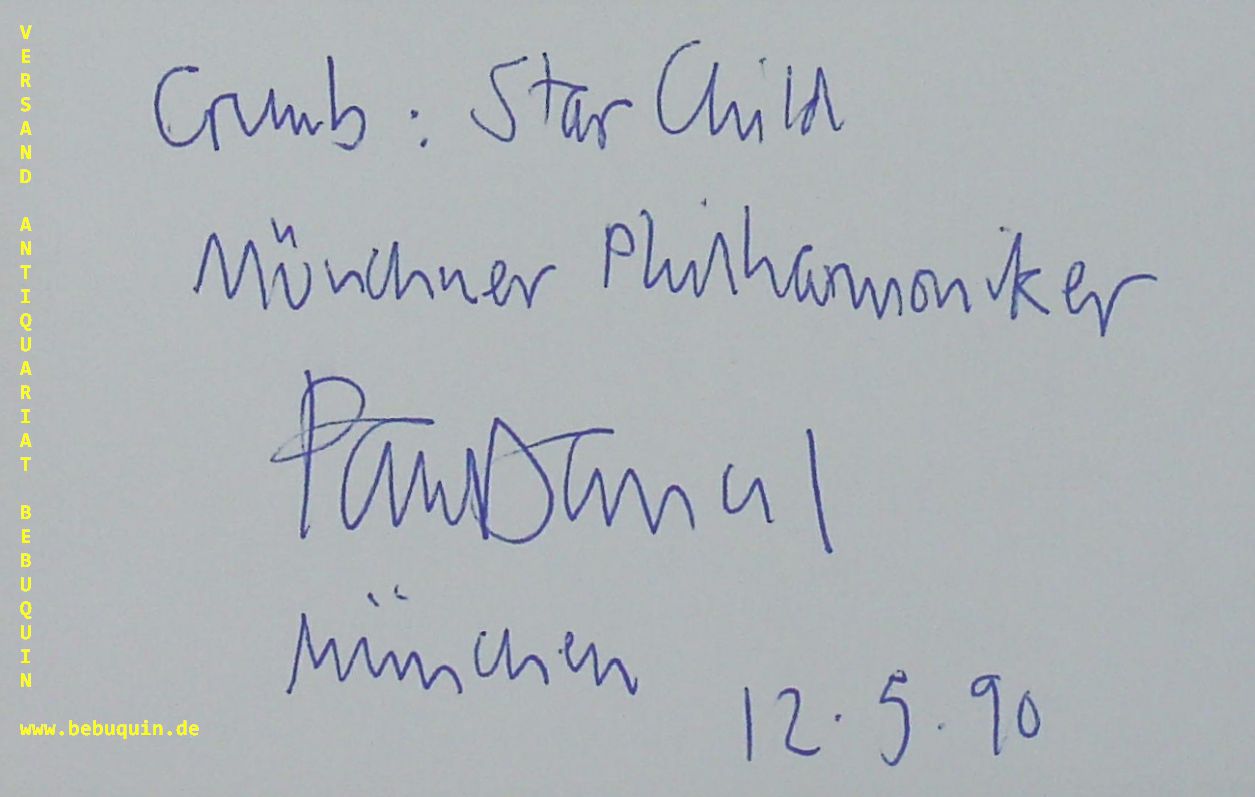 Crumb: Star Child
Münchner Philharmoniker
Paul Daniel
München
12.5.90
VERSAND ANTIQUARIAT BEBUQUIN
www.bebuquin.de